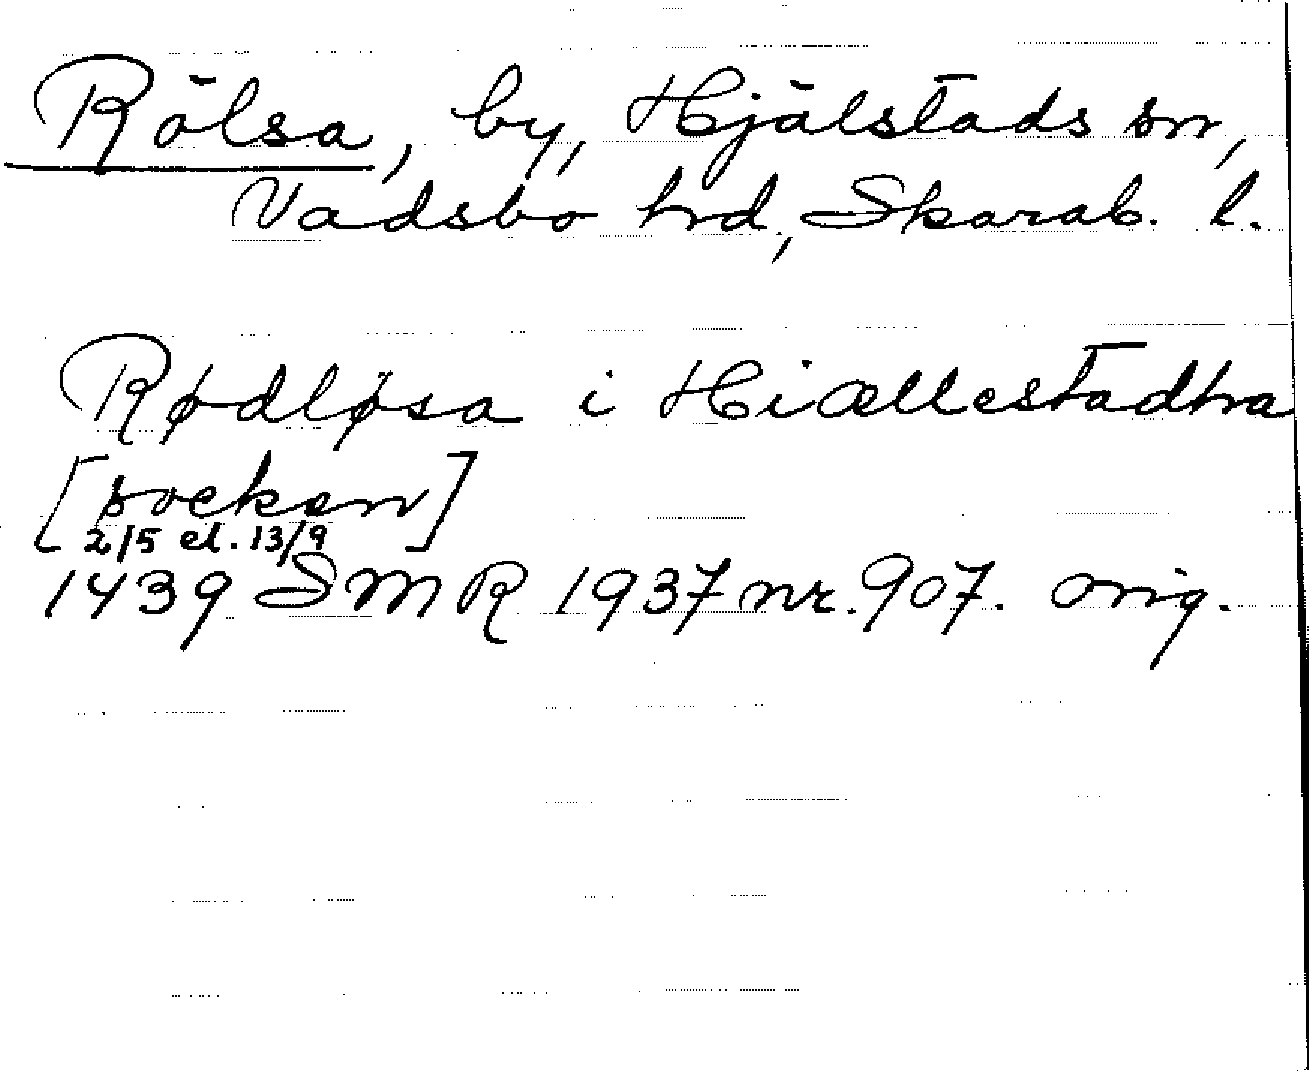 Rölsa, by, Hjälstads sn,
Vadsbo hrd, Skarab. l.
Rødløsa i Hiællestadhra
[socken]
2/5 el. 13/9
1439 SMR 1937 nr. 907. orig.